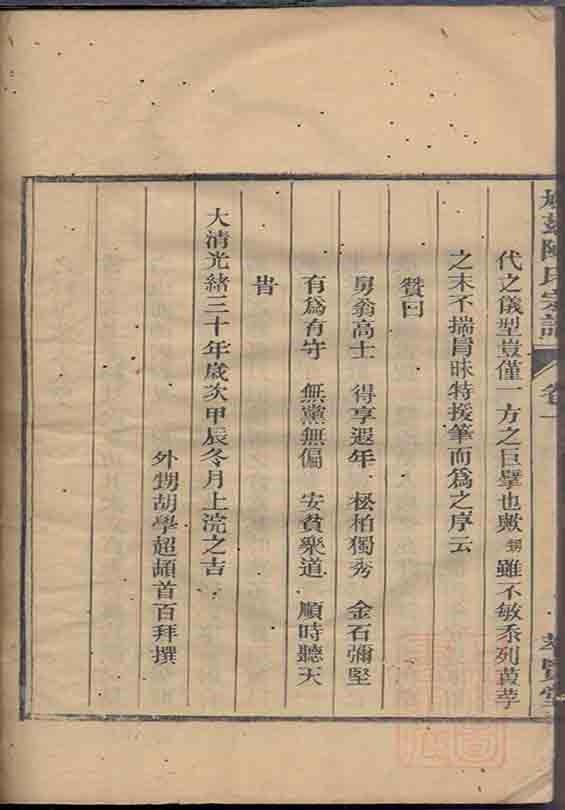 陳氏宗譜 卷一
代之儀型豈僅一方之巨擘也歟甥雖不敏忝列葭莩
之末不揣冒昧特援筆而爲之序云
贊曰
舅翁高士 得享遐年 松柏獨秀 金石彌堅
有爲有守 無黨無偏 安貧樂道 順時聽天
旹
大清光緒三十年歲次甲辰冬月上浣之吉
外甥胡學超頓首百拜撰